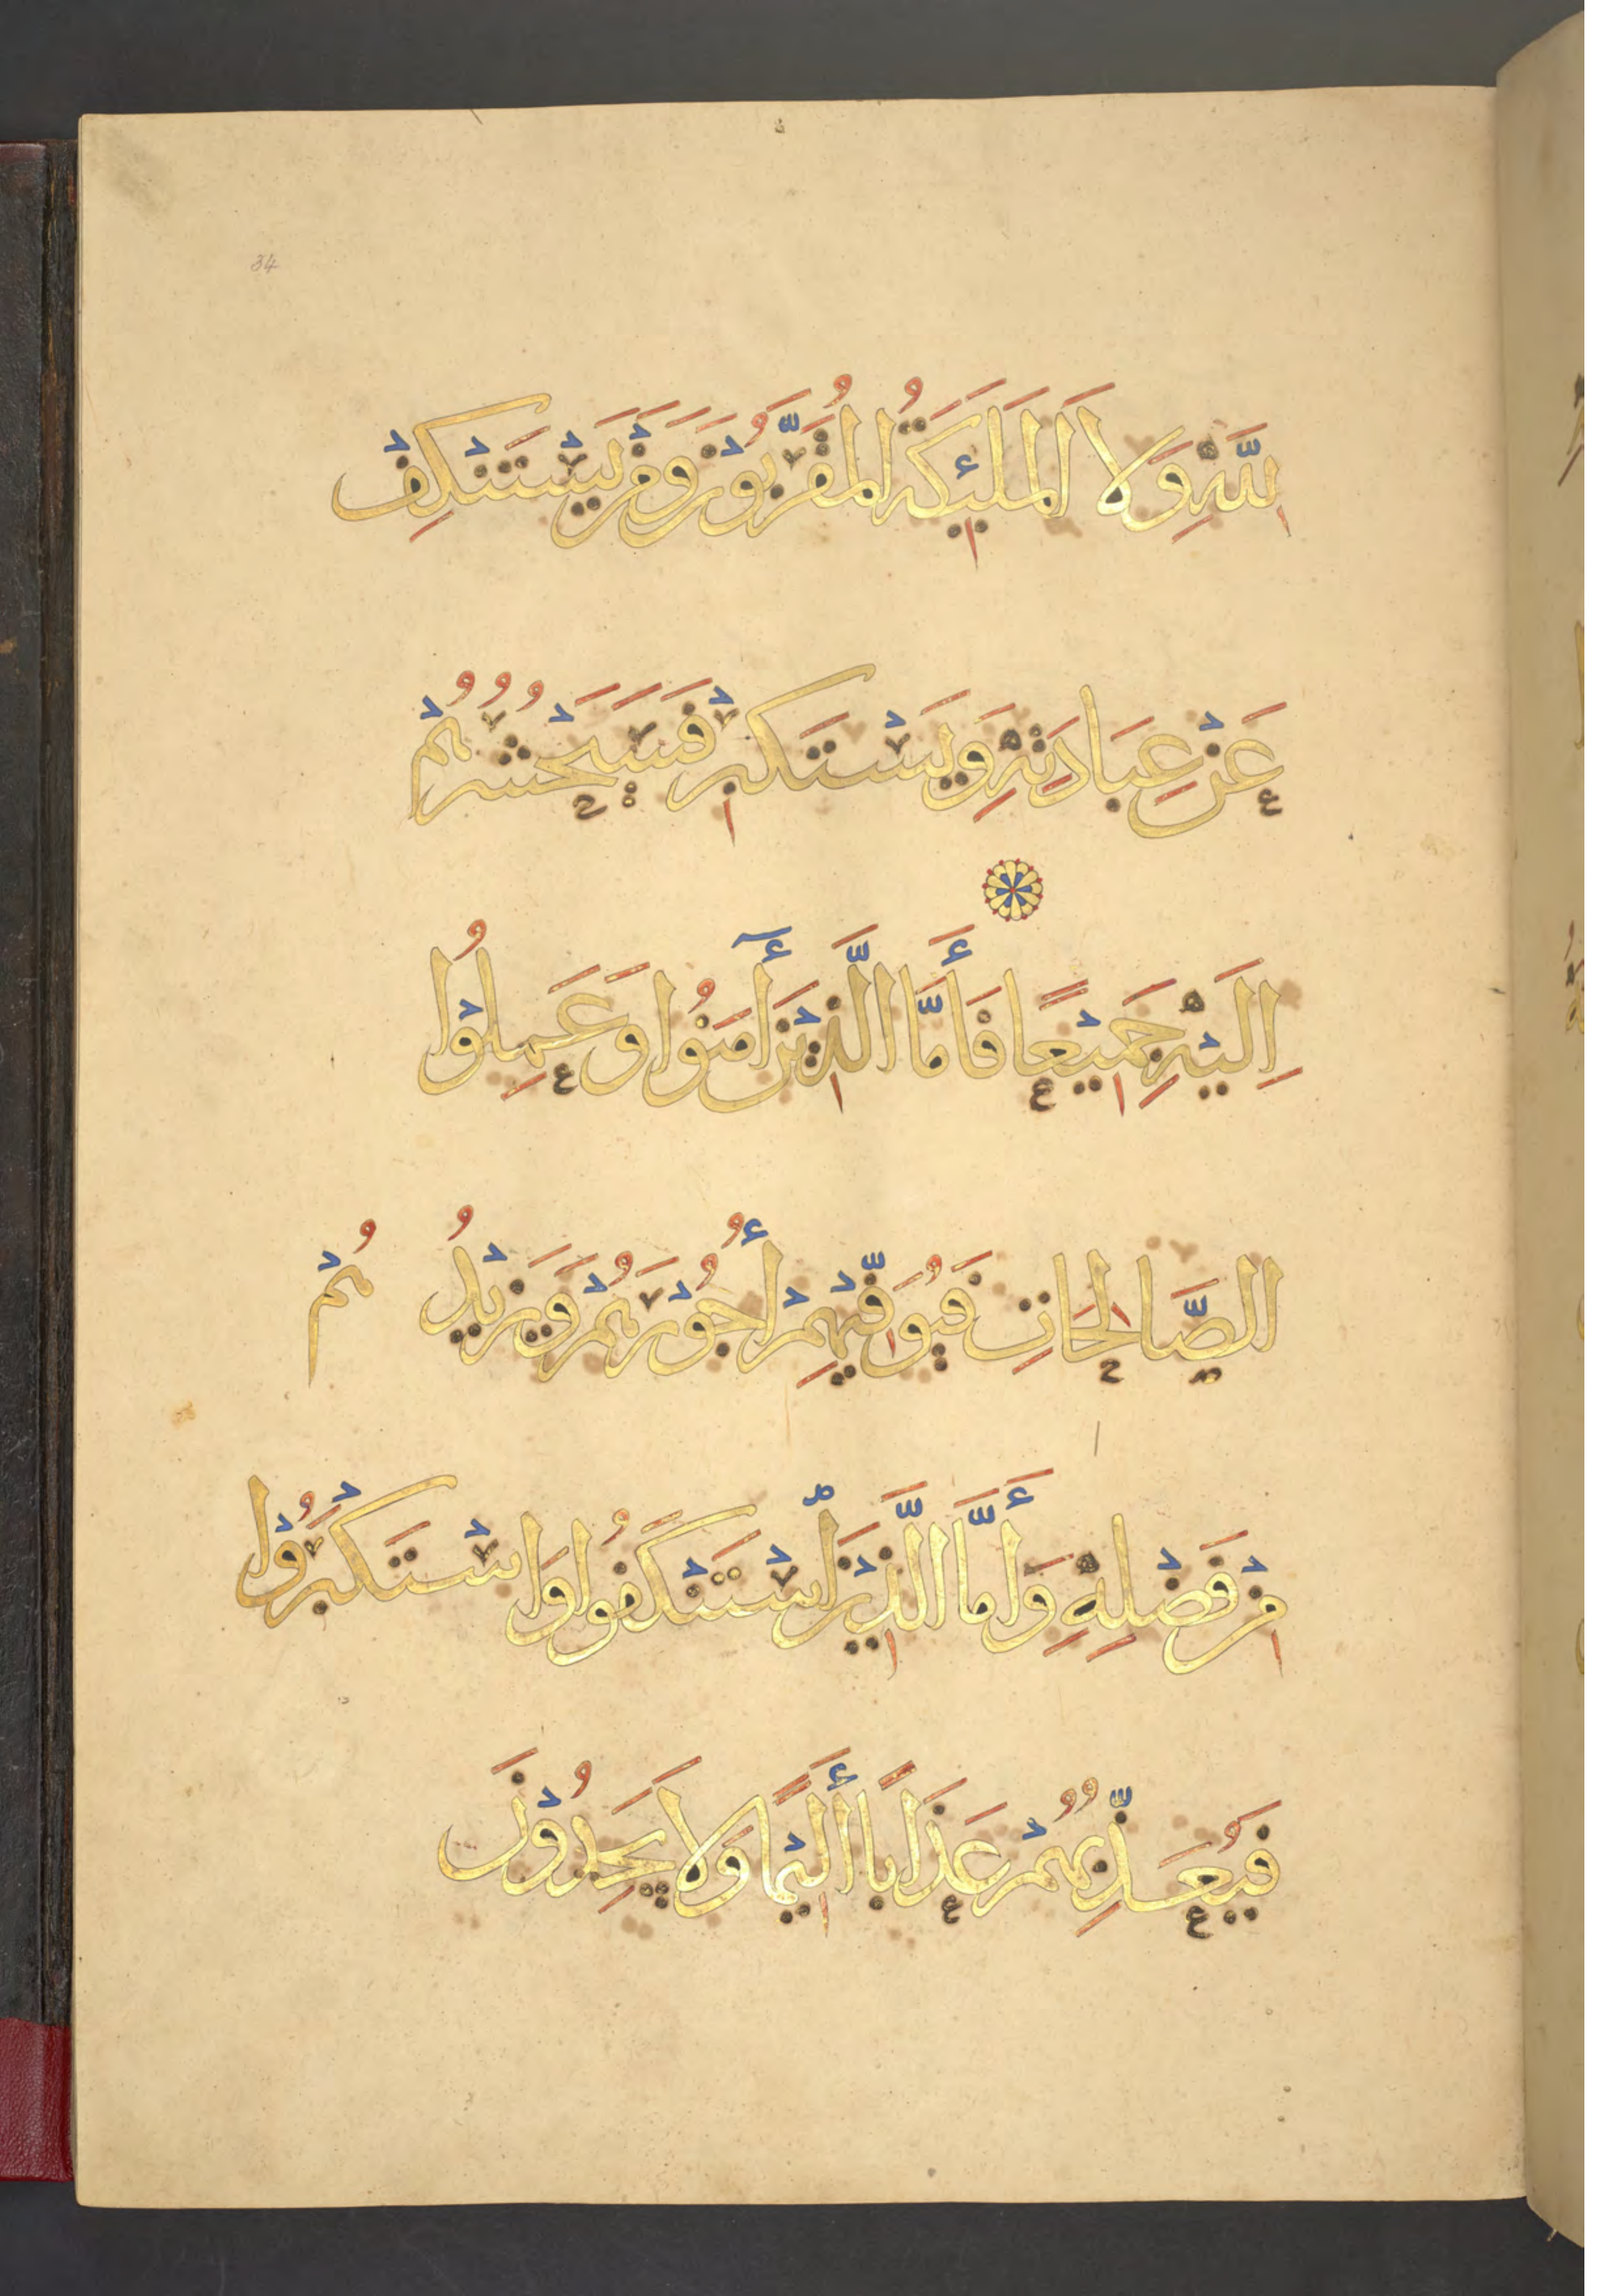 34
لِلَّهِ وَلَا الْمَلَئِكَةُ الْمُقَرَّبُوْنَ وَمَنْ يَسْتَنْكِفْ
عَنْ عِبَادَتِهِ وَيَسْتَكْبِرْ فَسَيَحْشُرُهُمْ
اِلَيْهِ جَمِيْعًا فَأَمَّا الَّذِيْنَ أٓمَنُوا وَعَمِلُوْا
الصَّالِحَاتِ فَيُوَفِّيْهِمْ أُجُوْرَهُمْ وَيَزِيْدُهُمْ
مِنْ فَضْلِهِ وَأَمَّا الَّذِيْنَ اسْتَنْكَفُوا وَاسْتَكْبَرُوْا
فَيُعَذِّبُهُمْ عَذَابًا أَلِيْمًا وَلَا يَجِدُوْنَ